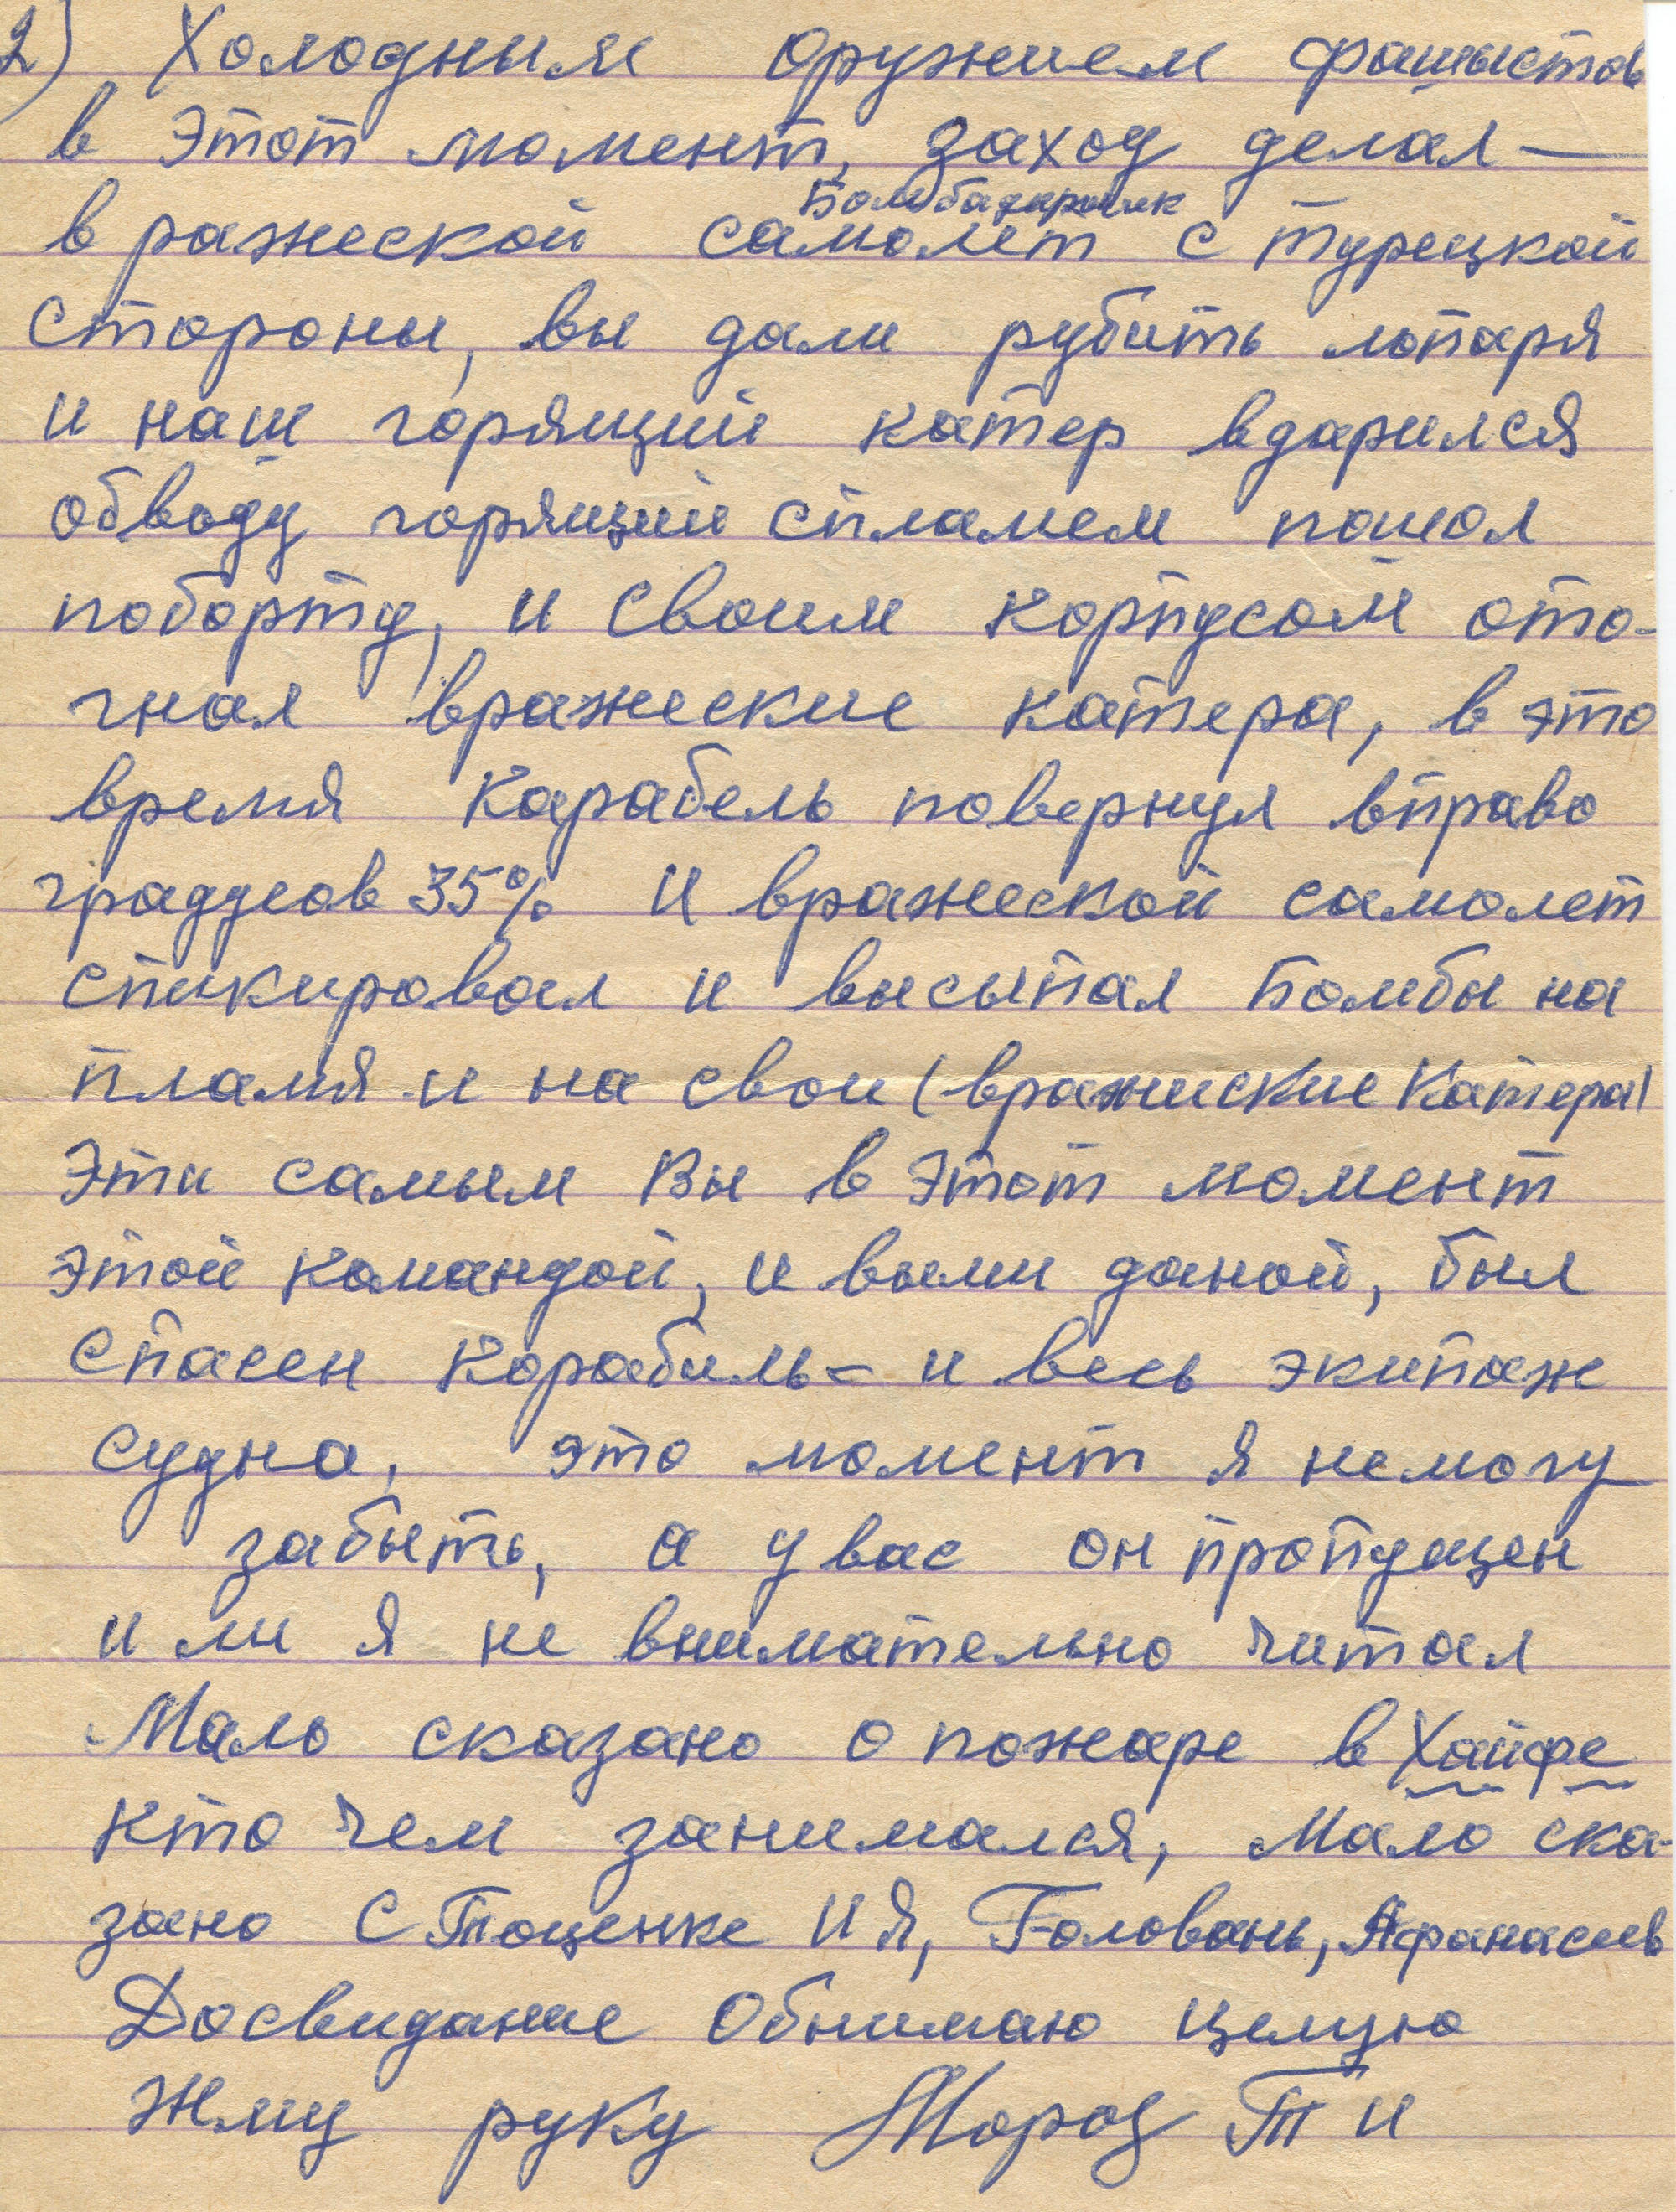 2) Холодным оружием фашыстов
в этот момент, заход делал —
Бомбадировик
вражеской самолет с турецкой
стороны, вы дали рубить лопаря
и наш горящий катер вдарился
обводу горящий спламем пошол
поборту, и своим корпусом ото-
гнал вражеские катера, в это
время карабель повернул вправо
граддусов 35% и вражеской самолет
спикировал и высыпал бомбы на
пламя и на свои (вражиские катера)
Эти самым вы в этот момент
этой командой, и выми даной, был
спасен корабиль = и весь экипаж
судна, это момент я немогу
забыть, а у вас он пропущен
или я не внимательно читал
Мало сказано о пожаре в Хайфе
кто чем занимался, мало ска-
зано С Тоценке И Я, Головань, Афанасиев
Досвидание Обнимаю целую
Жму руку Мороз Т И